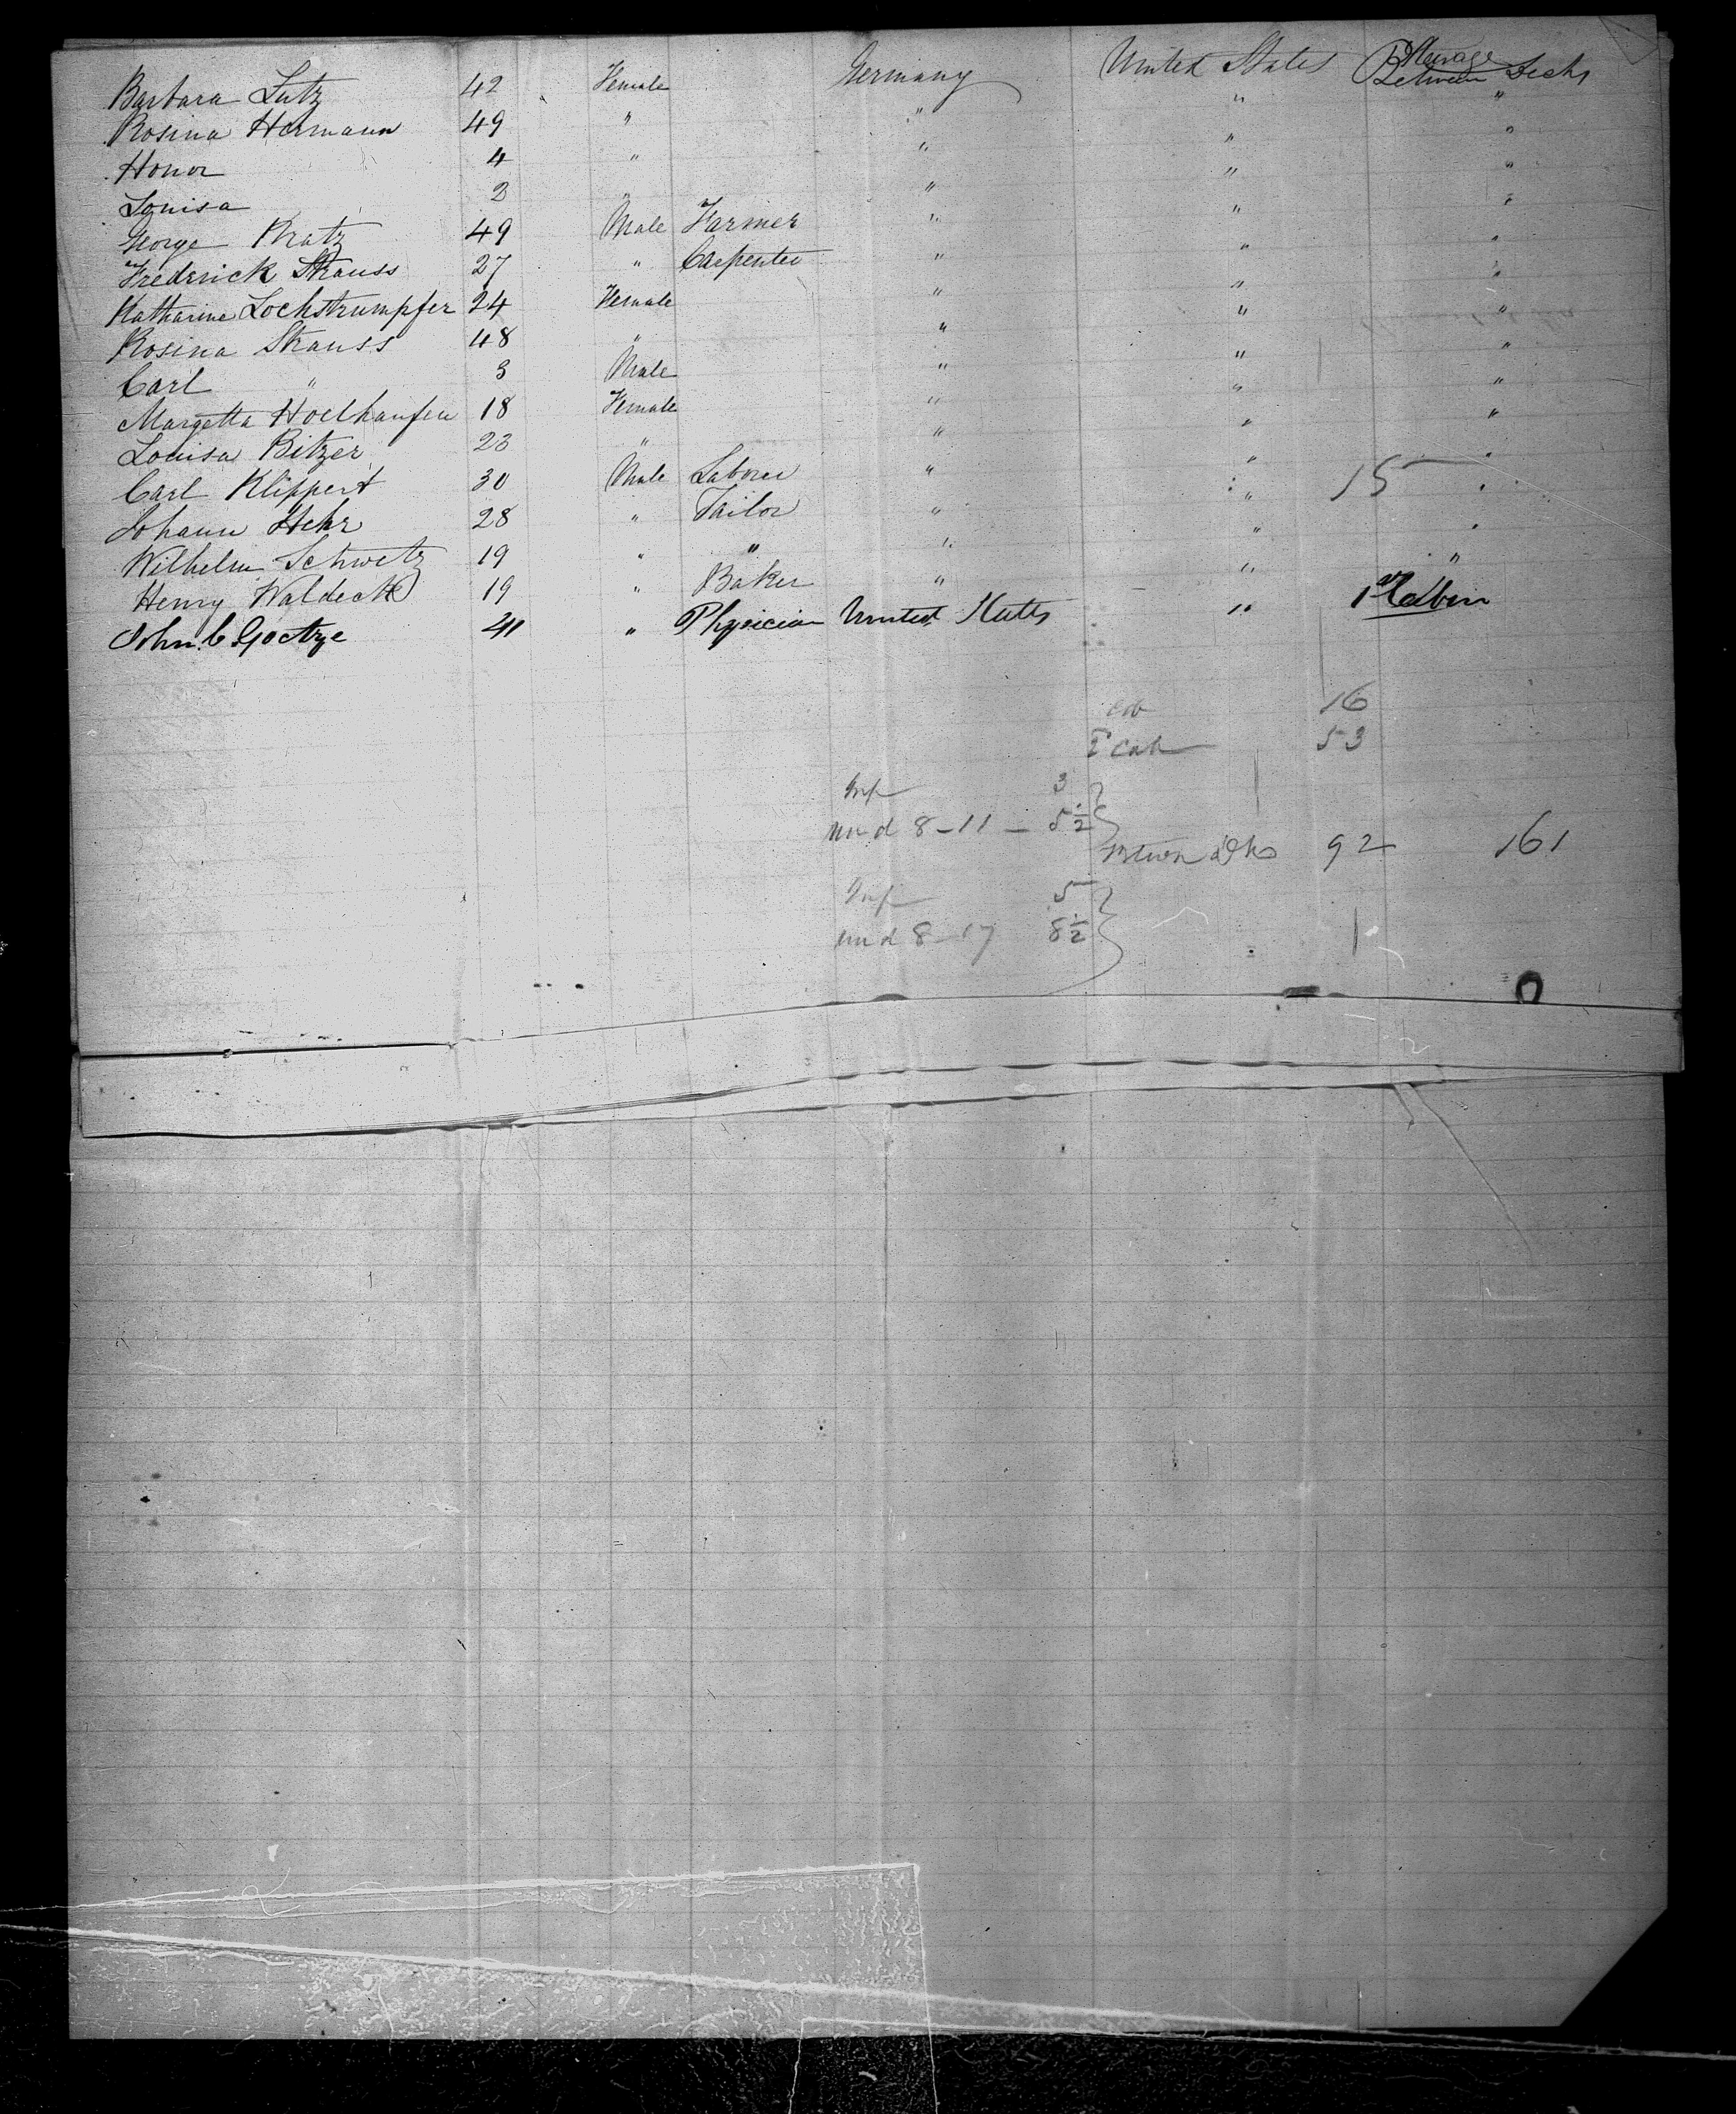 Barbara Lutz 42 Female Germany United States Steerage Between Decks
Rosina Hermann 49 " " " "
Honor 4 " " " "
Louisa 2 " " " "
George Kratz 49 Male Farmer " " "
Frederick Strauss 27 " Carpenter " " "
Katharine Lochstrumpfer 24 Female " " "
Rosina Strauss 48 " " " "
Carl " 3 Male " " "
Margetta Hoelhaufen 18 Female " " "
Louisa Bitzer 23 " " " "
Carl Klippert 30 Male Laborer " " "
Johann Hehr 28 " Tailor " " 15 "
Wilhelm Schwetz 19 " " " " "
Henry Waldeck 19 " Baker " " "
John C Goetze 41 " Physician United States " 1st Cabin
Cab 16
2 Cab 53
Inf 3
und 8 - 11 - 5½
Btwn Dks 92 161
Inf 5
und 8 - 17 8½
1
0